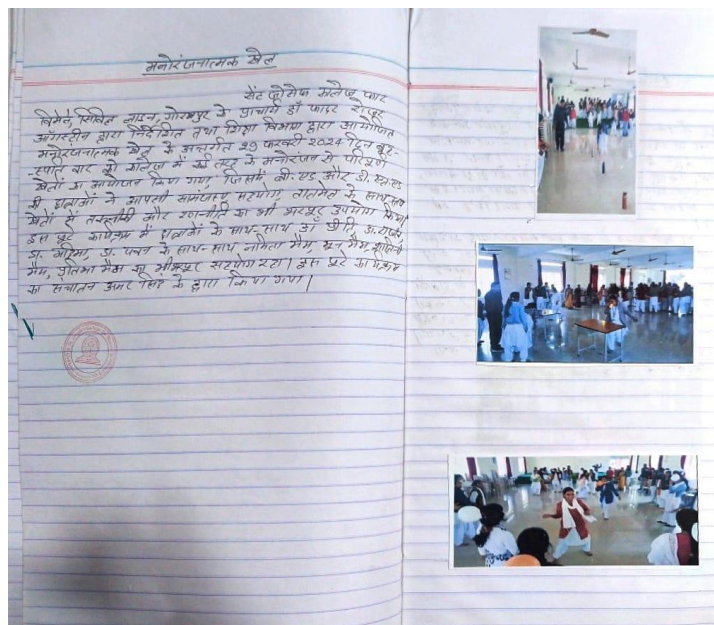 मनोरंजनात्मक खेल
सेंट जोसेफ कॉलेज फार
विमेन, सिविल लाइन, गोरखपुर के प्राचार्य डॉ फादर रोजर
ऑगस्टीन द्वारा निर्देशित तथा शिक्षा विभाग द्वारा आयोजित
मनोरंजनात्मक खेल के अन्तर्गत 29 फरवरी 2024 दिन बृह-
-स्पति वार को कालेज में कई तरह के मनोरंजन से परिपूर्ण
खेलों का आयोजन किया गया, जिसमें बी.एड और डी.एल.एड
की छात्राओं ने आपसी सामंजस्य सहयोग, तालमेल के साथ-साथ
खेलों में तकनीकी और रणनीति का भी भरपूर उपयोग किया।
इस पूरे कार्यक्रम में छात्राओं के साथ-साथ डा प्रीति, डा.
डा. गरिमा, डा. पवन के साथ-साथ नमिता मैम, मैम,
मैम, प्रतिमा मैम का भरपूर सहयोग रहा। इस पूरे कार्यक्रम
का संचालन अमर सिंह के द्वारा किया गया।